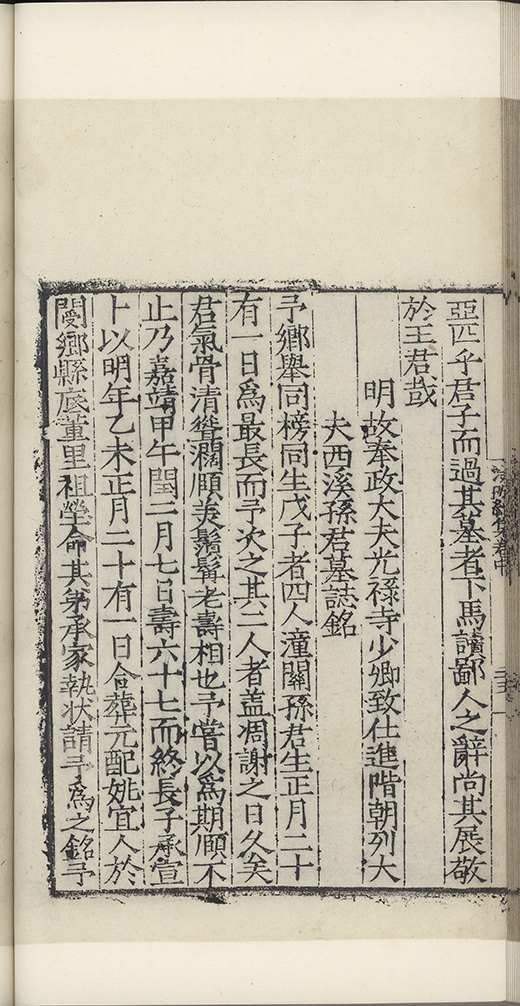 亞匹乎君子而過其墓者下馬讀鄙人之辭尚其展敬
於王君哉
明故奉政大夫光祿寺少卿致仕進階朝列大
夫西溪孫君墓誌銘
予鄉舉同榜同生戊子者四人潼關孫君生正月二十
有一日爲最長而予次之其二人者盖凋謝之日久矣
君氣骨清聳濶頤美鬚髯老壽相也予嘗以爲期頤不
止乃嘉靖甲午閏二月七日壽六十七而終長子承宣
卜以明年乙未正月二十有一日合葬元配姚宜人於
閿鄉縣底董里祖塋命其弟承家執状請予爲之銘予